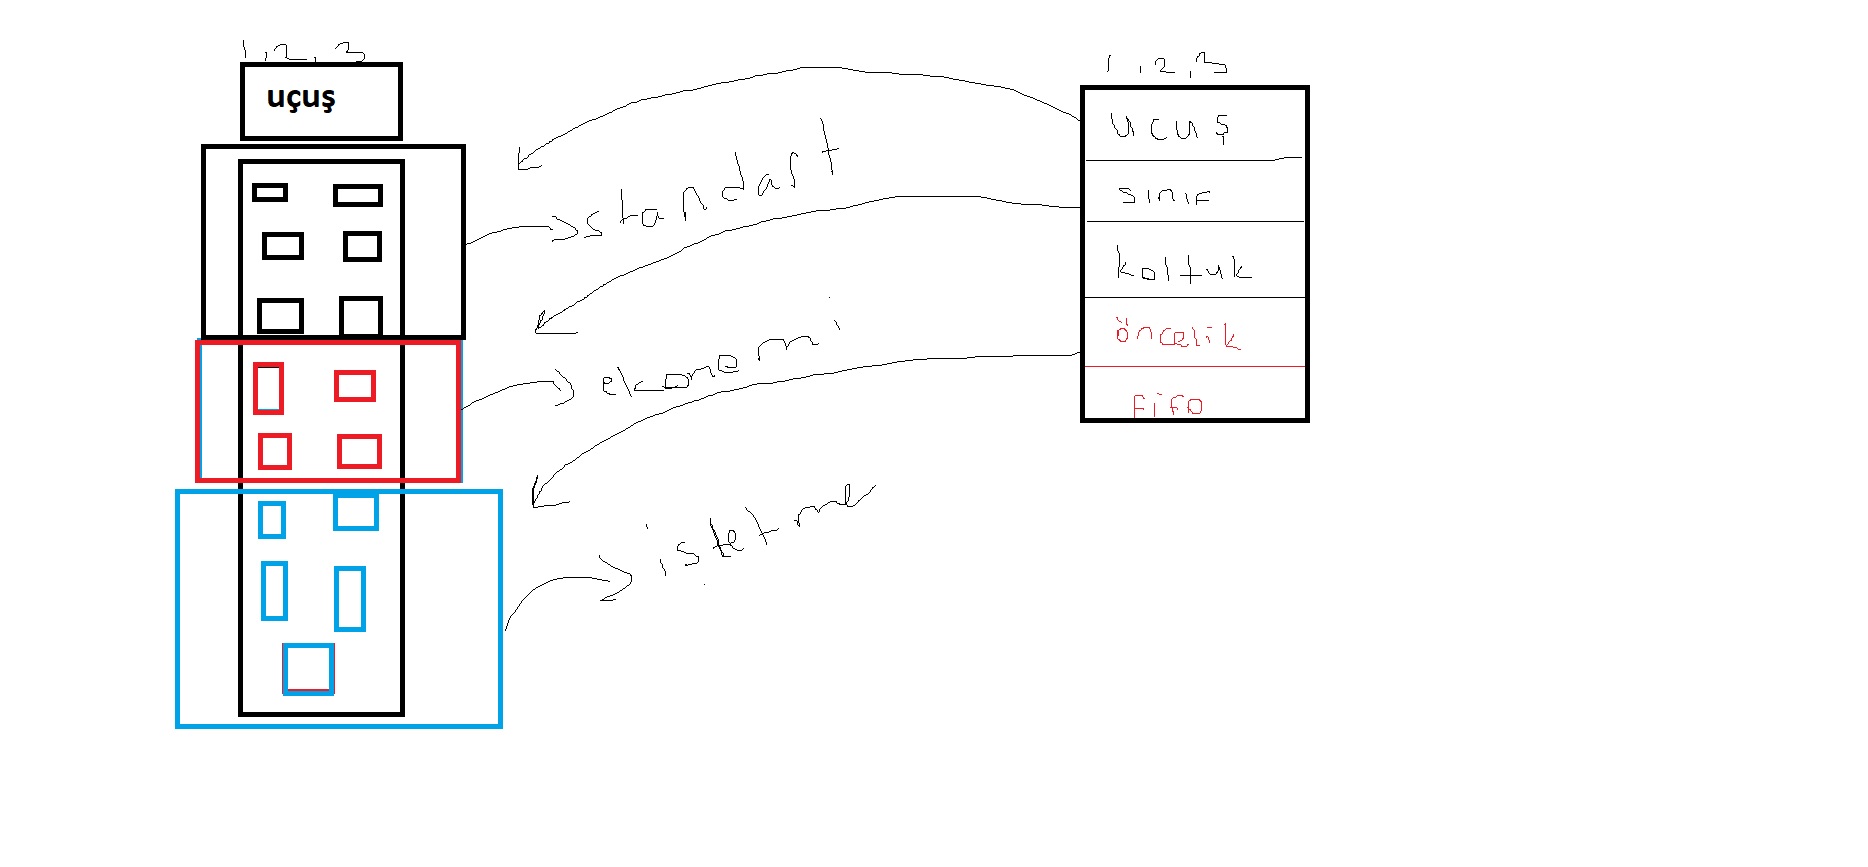 1,2,3
uçuş
standart
ekonomi
işletme
1,2,3
ucuş
sınıf
koltuk
öncelik
fifo